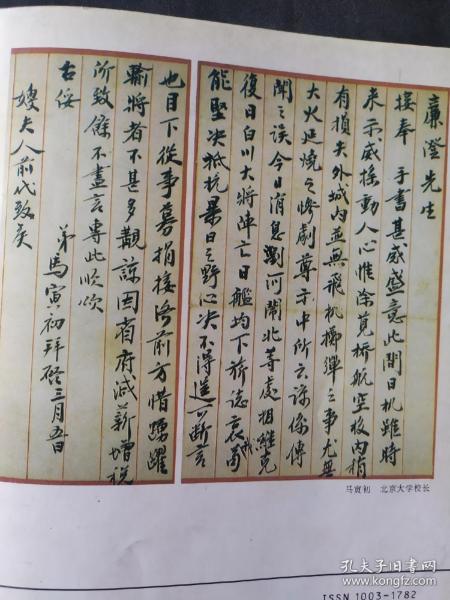 廉澄先生
接奉 手書甚感盛意此間日机雖時
来示威搖動人心惟除筧橋航空校内稍
有損失外城内並無飛机擲弹之事尤無
大火延燒之慘劇尊示中所云諒係傳
聞之误今日消息瀏河閘北等處相繼克
復日白川大將陣亡日艦均下旂誌哀我苟
能坚决抵抗暴日之野心决不得逞可断言
也目下從事募捐接济前方惜踴躍
輸將者不甚多觀諒因省府减薪增税
所致餘不盡言專此顺颂
古绥
弟馬寅初拜啓三月五日
嫂夫人前代致矣
马寅初 北京大学校长
ISSN 1003-1782
孔夫子旧书网
www.kongfz.com